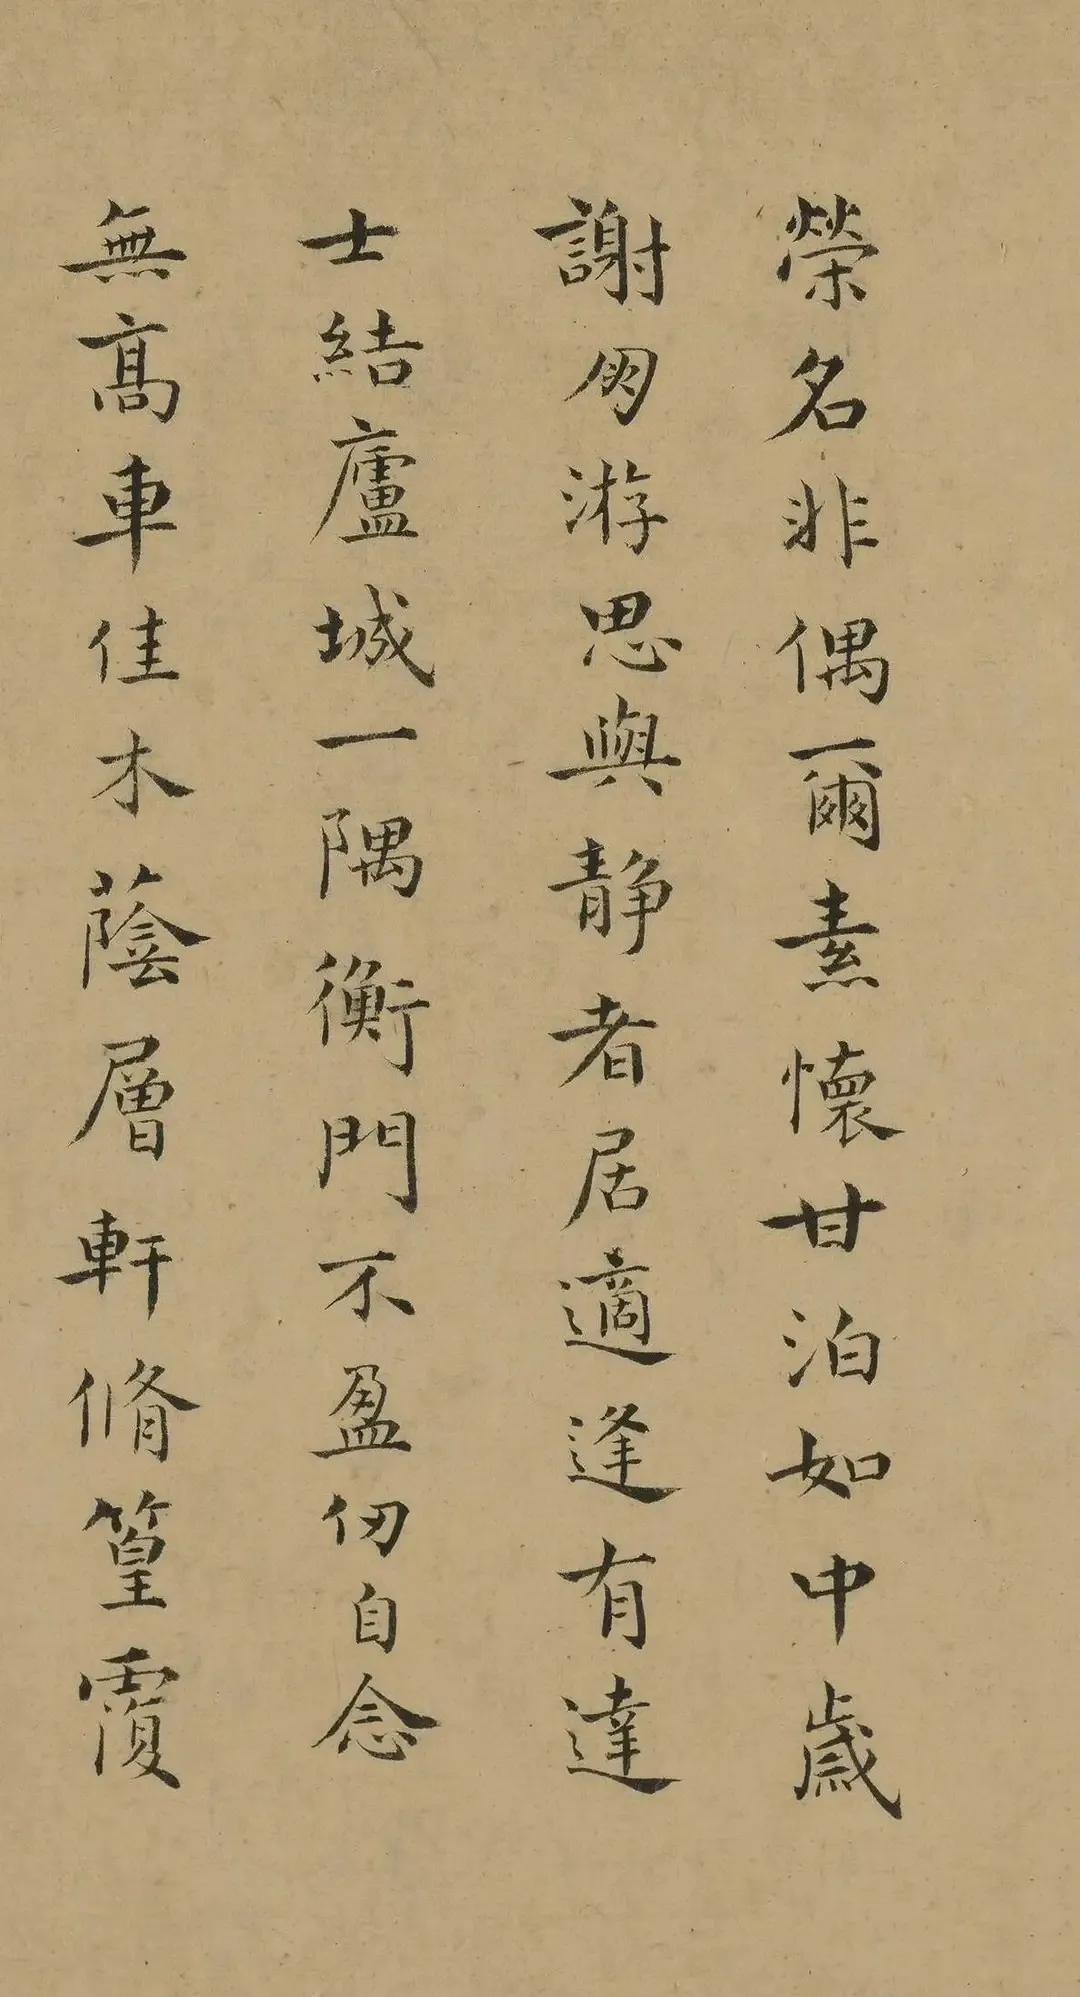 榮名非偶爾素懷甘泊如中歲
謝朋游思與静者居適逢有達
士結廬城一隅衡門不盈仞自念
無髙車佳木蔭層軒脩篁覆